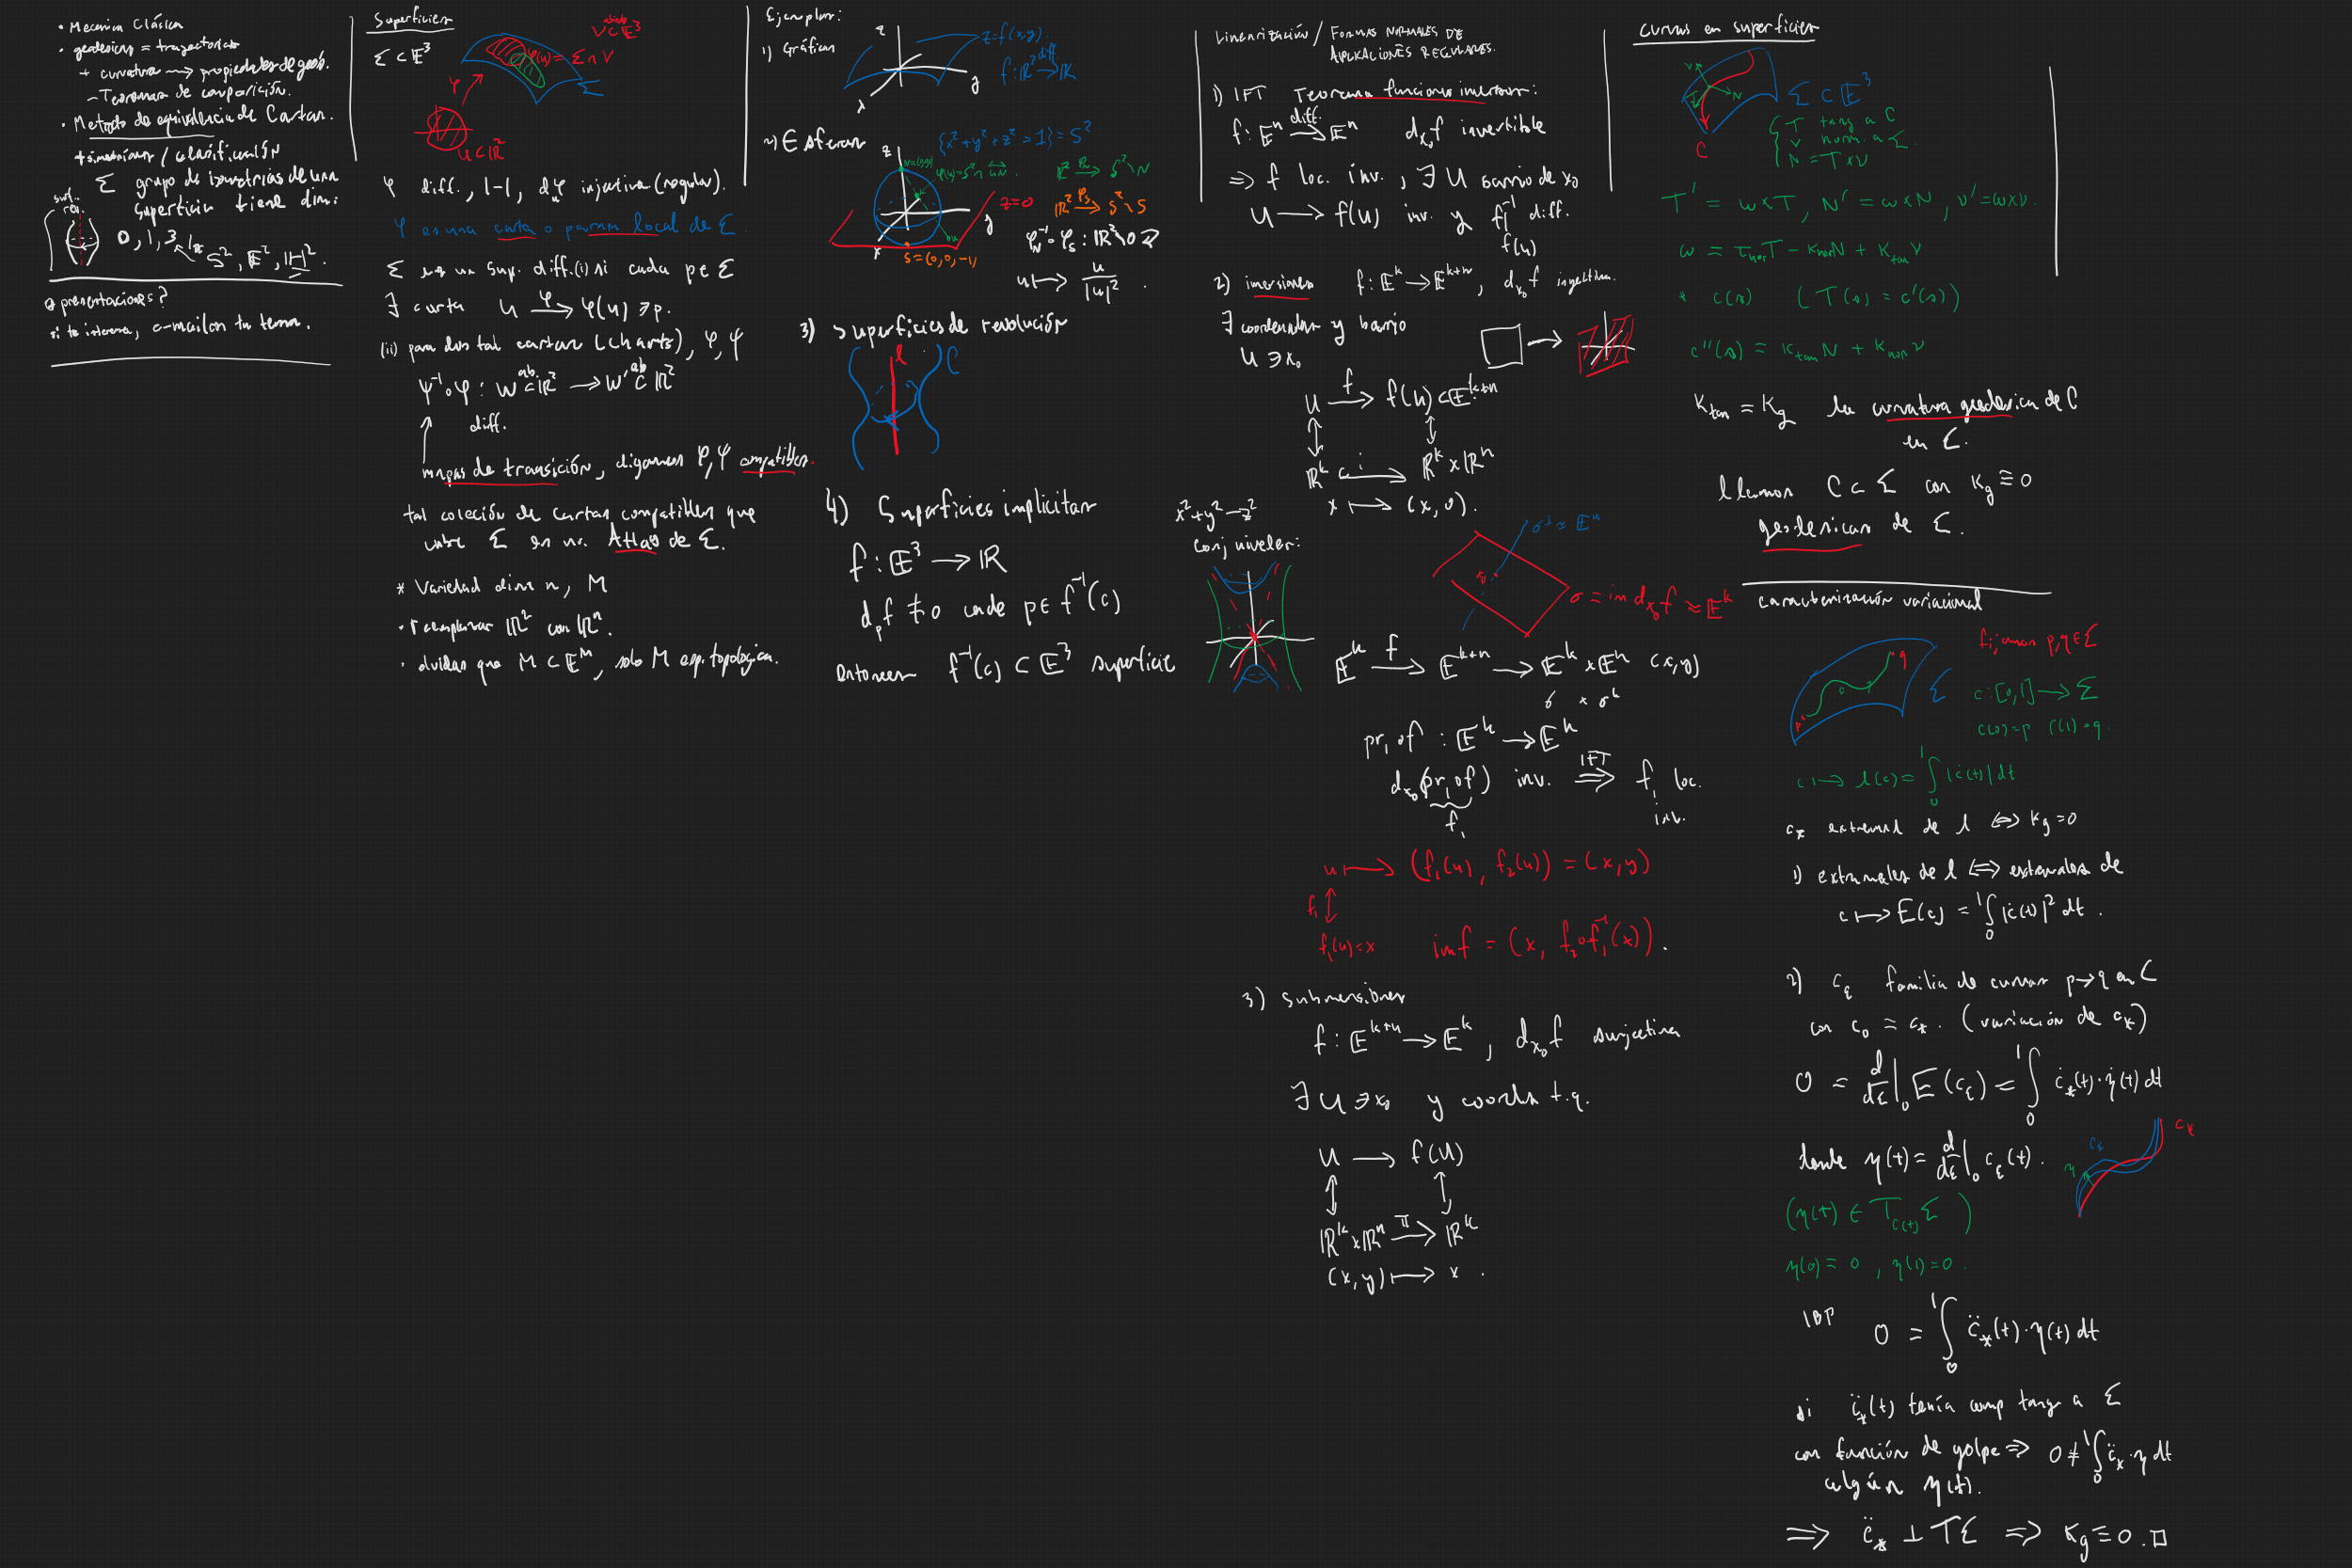 • Mecanica Clásica
• geodesicas = trayectorias
+ curvatura ⟶ propiedades de geod.
– Teoremas de comparición.
• Metodo de equivalencia de Cartan.
+ simetrias / clasificación
Σ grupo de isometrias de una
superficie tiene dim:
surf. rev.
0, 1, 3
S², E², H².
presentaciones?
si te interesa, e-mailon tu tema.
Superficies
Σ ⊂ E³
abierto
V ⊂ E³
φ(u) = Σ ∩ V
φ
Σ
u ⊂ R²
φ diff., 1-1, d_uφ injectiva (regular).
φ es una carta o param local de Σ.
Σ es un sup. diff. (i) si cada p ∈ Σ
∃ carta U ⟶^φ φ(u) ∋ p.
(ii) para dos tal cartas (charts), φ, ψ
ψ⁻¹∘φ : W ⊂^ab R² ⟶ W' ⊂^ab R²
diff.
mapas de transición, digamos φ, ψ compatibles.
tal coleción de cartas compatibles que
cubre Σ es un Atlas de Σ.
* Variedad dim n, M
• reemplazar R² con Rⁿ.
• olvidas que M ⊂ E^M, solo M esp. topologica.
Ejemplos:
1) Gráficas
z
y
x
z = f(x,y).
f: R² ⟶^diff R
2) Esferas
{x² + y² + z² = 1} = S²
z
N=(0,0,1)
φ(u) = S² ∩ uN.
R² ⟶^φN S² \ N
z=0
R² ⟶^φS S² \ S
y
x
s = (0,0,-1)
φ_N⁻¹∘φ_S : R² \ 0 ↺
u ⟼ u/|u|² .
3) superficies de revolución
l
C
4) Superficies implicitas
f : E³ ⟶ R
d_p f ≠ 0 cada p ∈ f⁻¹(c)
entonces f⁻¹(c) ⊂ E³ superficie
x² + y² − z²
conj niveles:
Linearización / FORMAS NORMALES DE
APLICACIONES REGULARES.
1) IFT Teorema funciones inversas:
f: Eⁿ ⟶^diff. Eⁿ d_x₀f invertible
⇒ f loc. inv., ∃ U barrio de x₀
U ⟶ f(u) inv. y f|⁻¹ diff.
f(u)
2) imersiones f: E^k ⟶ E^{k+n}, d_x₀f injectiva.
∃ coordenadas y barrio
U ∋ x₀
U ⟶^f f(u) ⊂ E^{k+n}
R^k ⟶^i R^k × Rⁿ
x ⟼ (x, 0).
σ^⊥ ≈ Eⁿ
σ = im d_x₀f ≈ E^k
E^k ⟶^f E^{k+n} ⟶ E^k × Eⁿ (x,y)
σ × σ^⊥
pr₁∘f : E^k ⟶ E^k
d_x₀(pr₁∘f) inv. ⟹^IFT f₁ loc.
inv.
f₁
u ⟼ (f₁(u), f₂(u)) = (x,y)
f₁ ↕
f₁(u) = x im f = (x, f₂∘f₁⁻¹(x)).
3) submersiones
f : E^{k+n} ⟶ E^k, d_x₀f surjectiva
∃ U ∋ x₀ y coords t.q.
U ⟶ f(U)
R^k × Rⁿ ⟶^π R^k
(x,y) ⟼ x .
curvas en superficies
ν
N
T
C
Σ ⊂ E³
T tang a C
ν norm. a Σ.
N = T × ν
T' = ω×T, N' = ω×N, ν' = ω×ν.
ω = τ_nor T − κ_nor N + κ_tan ν
* c(s) (T(s) = c'(s))
c''(s) = κ_tan N + κ_nor ν
κ_tan = κ_g la curvatura geodesica de C
en Σ.
llamamos C ⊂ Σ con κ_g ≡ 0
geodesicas de Σ.
caracterización variacional
p
q
Σ
fijamos p,q ∈ Σ
c: [0,1] ⟶ Σ
c(0) = p c(1) = q.
c ⟼ l(c) = ∫₀¹ |ċ(t)| dt
c_* extremal de l ⟺ κ_g = 0
1) extremales de l ⟺ extremales de
c ⟼ E(c) = ∫₀¹ |ċ(t)|² dt .
2) c_ε familia de curvas p→q en Σ
con c₀ = c_*. (variación de c_*)
0 = d/dε|₀ E(c_ε) = ∫₀¹ ċ_*(t)·η̇(t) dt
donde η(t) = d/dε|₀ c_ε(t).
c_ε
c_*
η
(η(t) ∈ T_c(t) Σ)
η(0) = 0, η(1) = 0.
IBP 0 = ∫₀¹ c̈_*(t)·η(t) dt
si c̈_*(t) tenía comp tang a Σ
con función de golpe ⇒ 0 ≠ ∫₀¹ c̈_*·η dt
algún η(t).
⟹ c̈_* ⊥ TΣ ⇒ κ_g ≡ 0. □